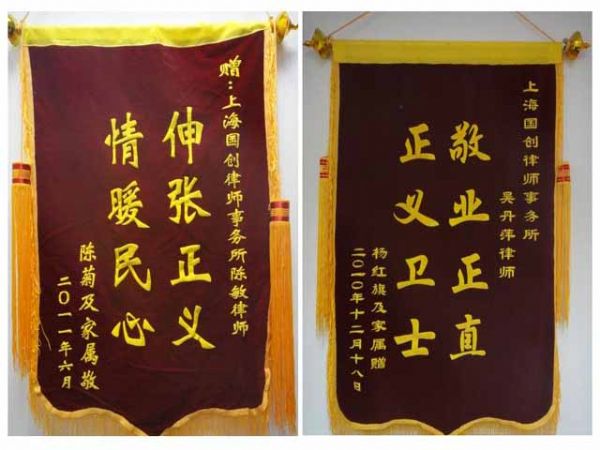 赠：上海国创律师事务所陈敏律师
伸张正义
情暖民心
陈菊及家属敬
二〇一一年六月
上海国创律师事务所
吴丹萍律师
敬业正直
正义卫士
杨红旗及家属赠
二〇一〇年十二月十八日